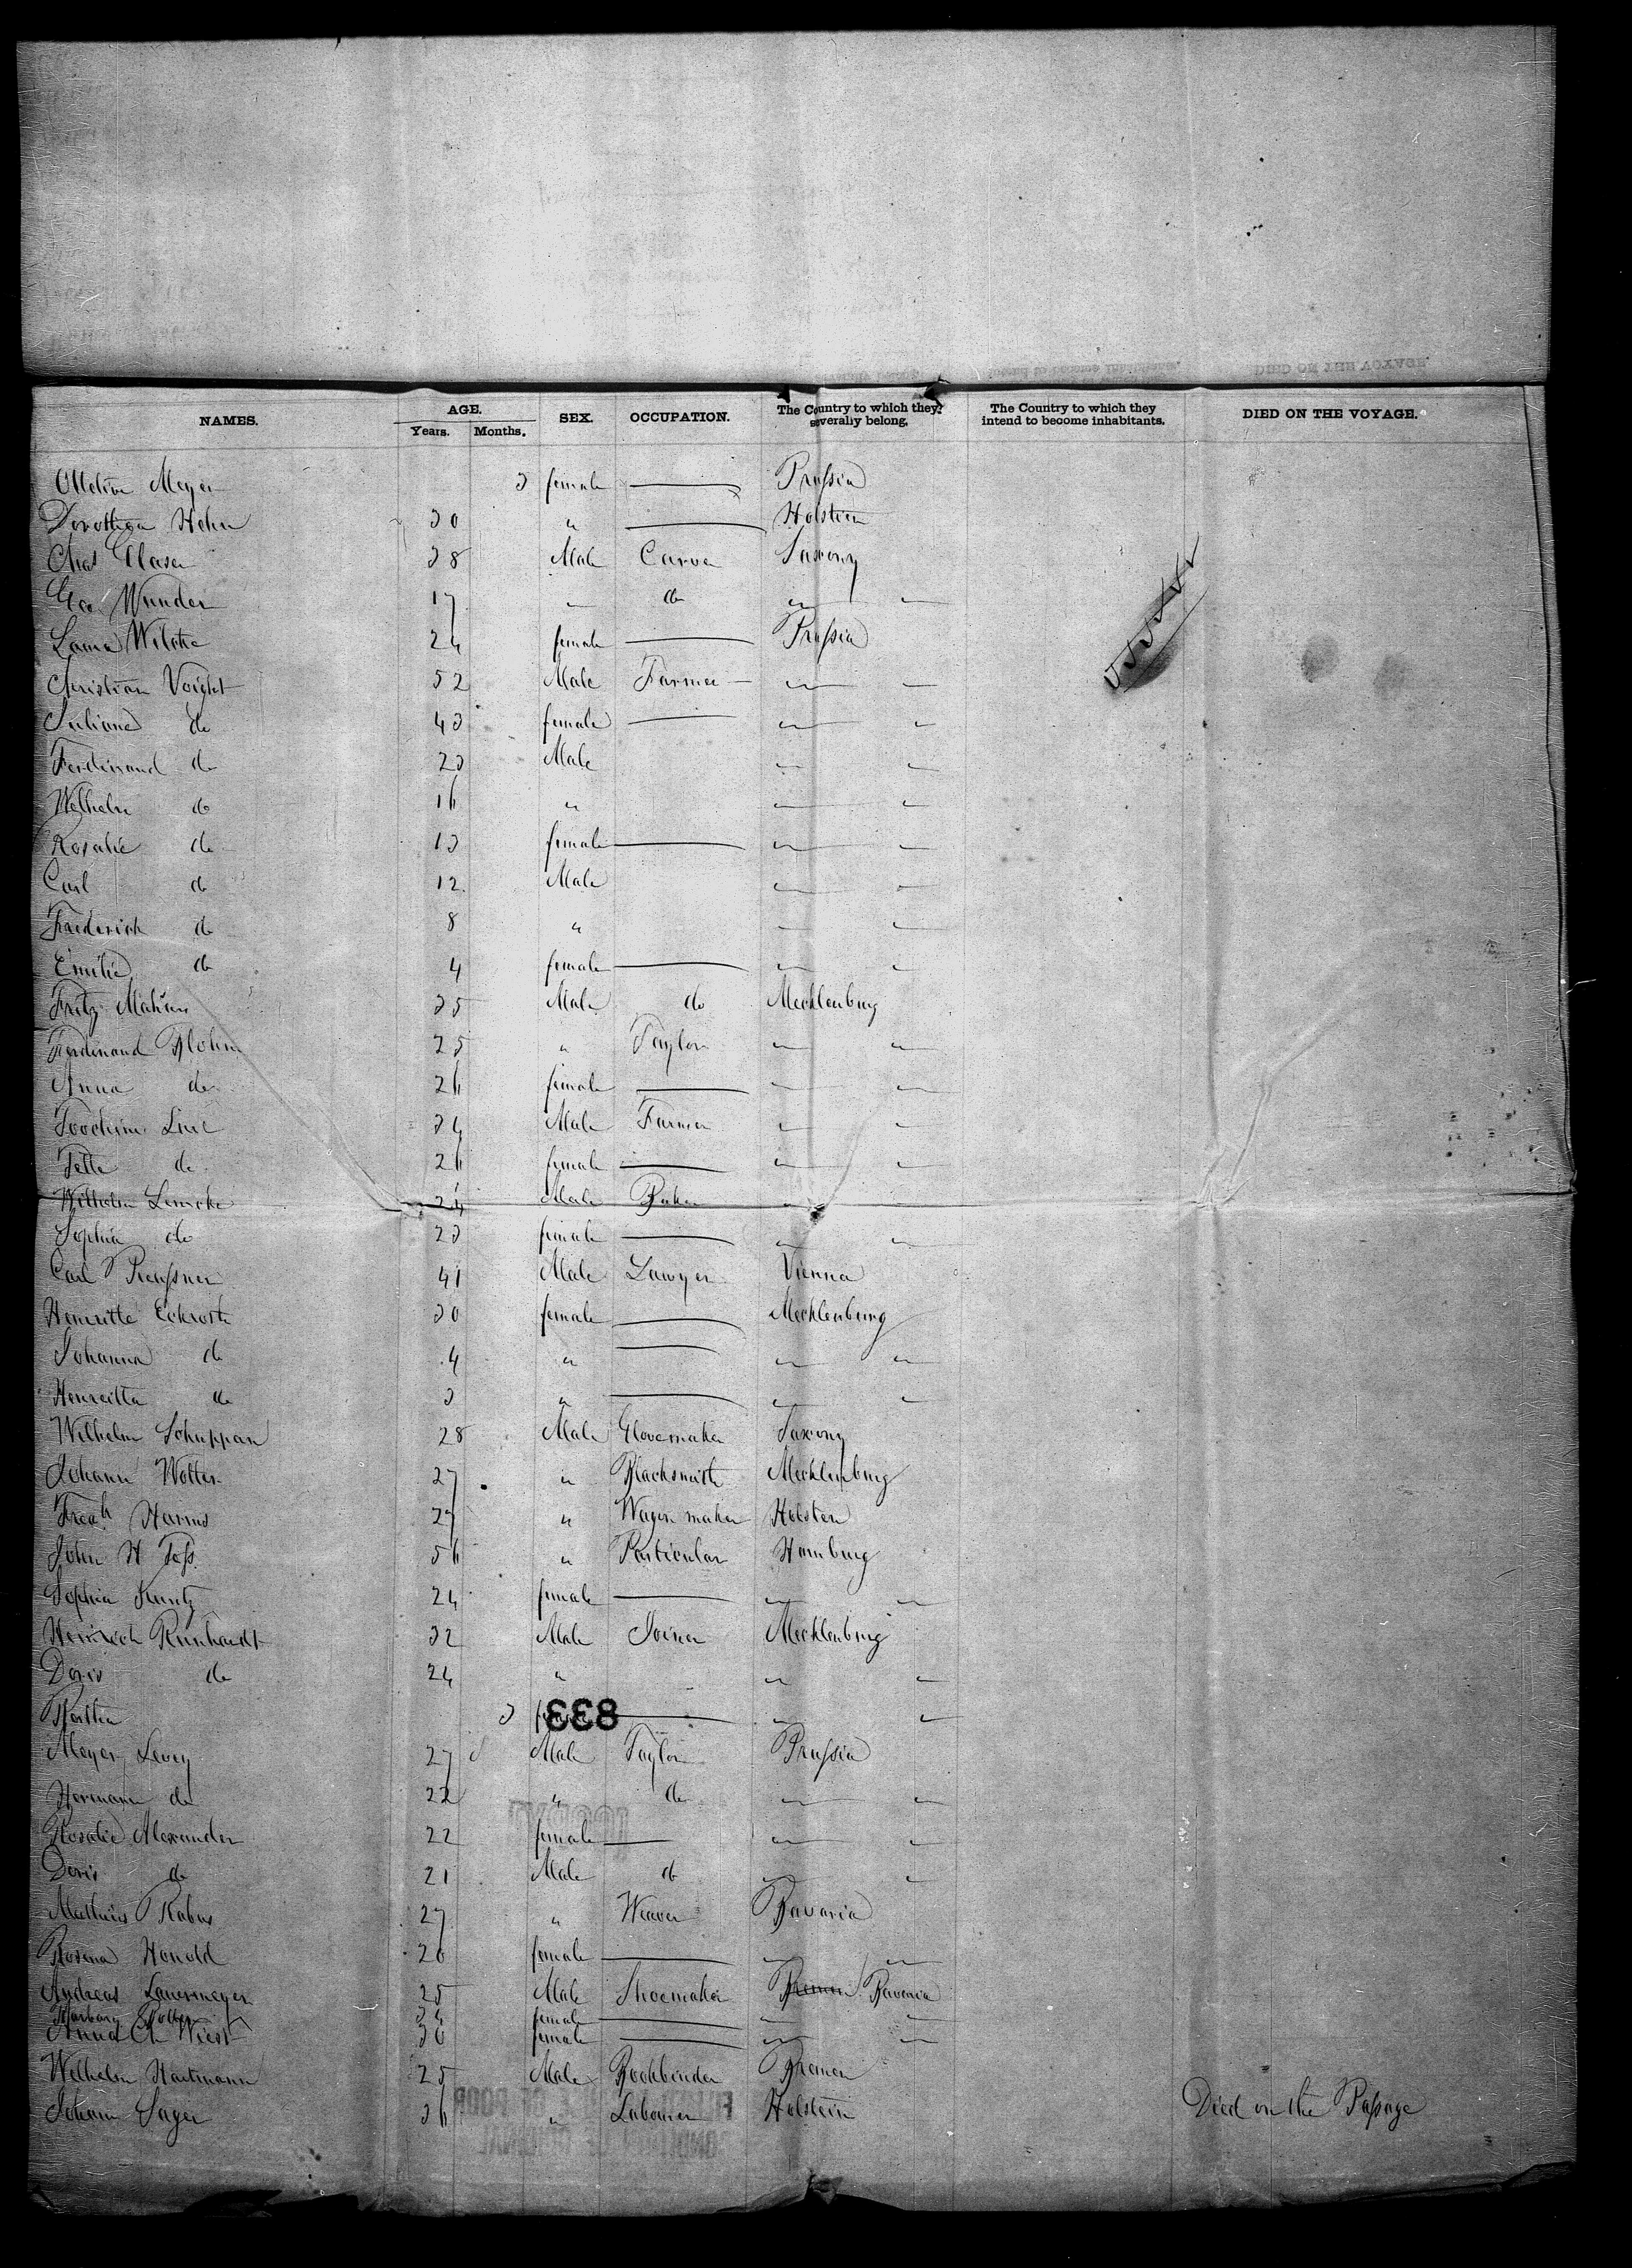 NAMES. AGE. Years. Months. SEX. OCCUPATION. The Country to which they severally belong. The Country to which they intend to become inhabitants. DIED ON THE VOYAGE.
Meyer 3 female Prussia
Dorothea Hehn 30 " Holstein
Chas Glaser 38 Male Carver Saxony
Geo Wunder 17 do
Wilcke 24 female Prussia
Christian Voight 52 Male Farmer
Juliana do 43 female
Ferdinand do 23 Male
Wilhelm do 16 "
Rosalie do 13 female
Carl do 12 Male
Friederich do 8 "
Emilie do 4 female
Fritz 35 Male do Mecklenburg
Ferdinand Blohm 25 " Taylor
Anna do 26 female
34 Male Farmer
do 26 female
Wilhelm Lemcke 24 Male Baker
Sophia do 23 female
Carl Preussner 41 Male Lawyer Vienna
Henriette 30 female Mecklenburg
Johanna do 4 "
Henreitta do 3 "
Wilhelm Schuppan 28 Male Glovemaker Saxony
Johann Wolter 27 " Blacksmith Mecklenburg
Fredk Harms 27 " Wagon maker Holstein
John H 56 " Particular Hamburg
Sophia Kuntz 24 female
Heinrich Reinhardt 32 Male Joiner Mecklenburg
Doris do 24 "
Bertha 3 833
Meyer Levey 27 Male Taylor Prussia
Hermann do 22 " do
Rosalie Alexander 22 female
Doris do 21 Male do
Mathias Rabus 27 " Weaver Bavaria
Rosina Honold 20 female
Andreas Lauermeyer 25 Male Shoemaker Bremen Bavaria
Barbara 34 female
Anna 30 female
Wilhelm Hartmann 25 Male Bookbinder Bremen
Johann Sager 36 " Labourer Holstein Died on the Passage